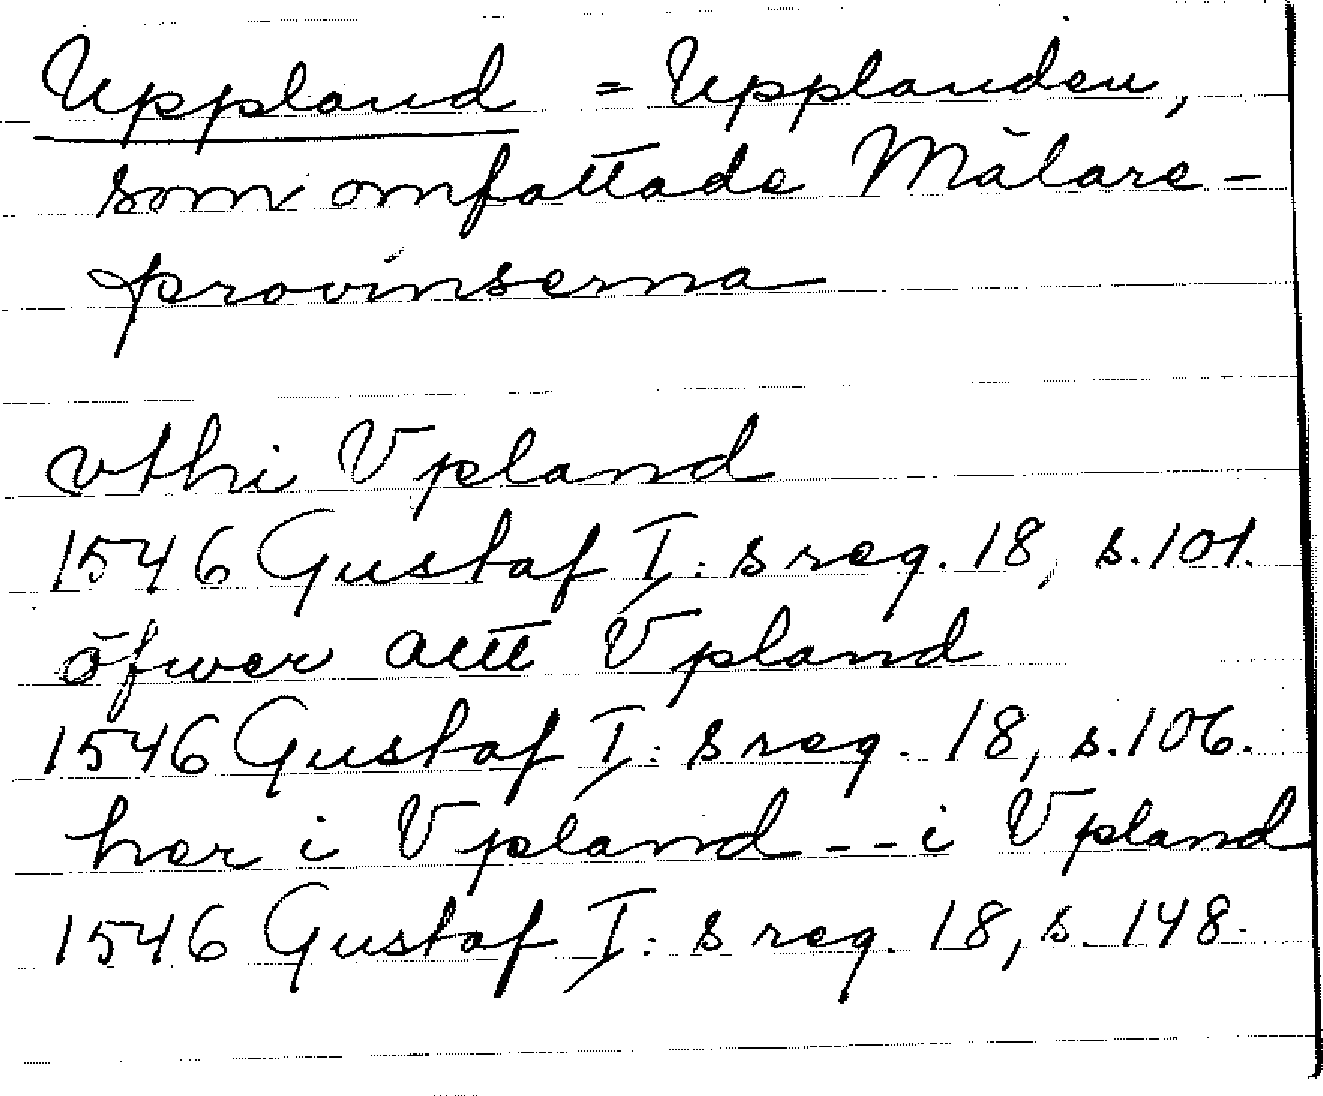 Uppland = Upplanden,
som omfattade Mälare-
provinserna
vthi Vpland
1546 Gustaf I: s reg. 18, s. 101.
öfwer altt Vpland
1546 Gustaf I: s reg. 18, s. 106.
her i Vpland - - i Vpland
1546 Gustaf I: s reg. 18, s. 148.